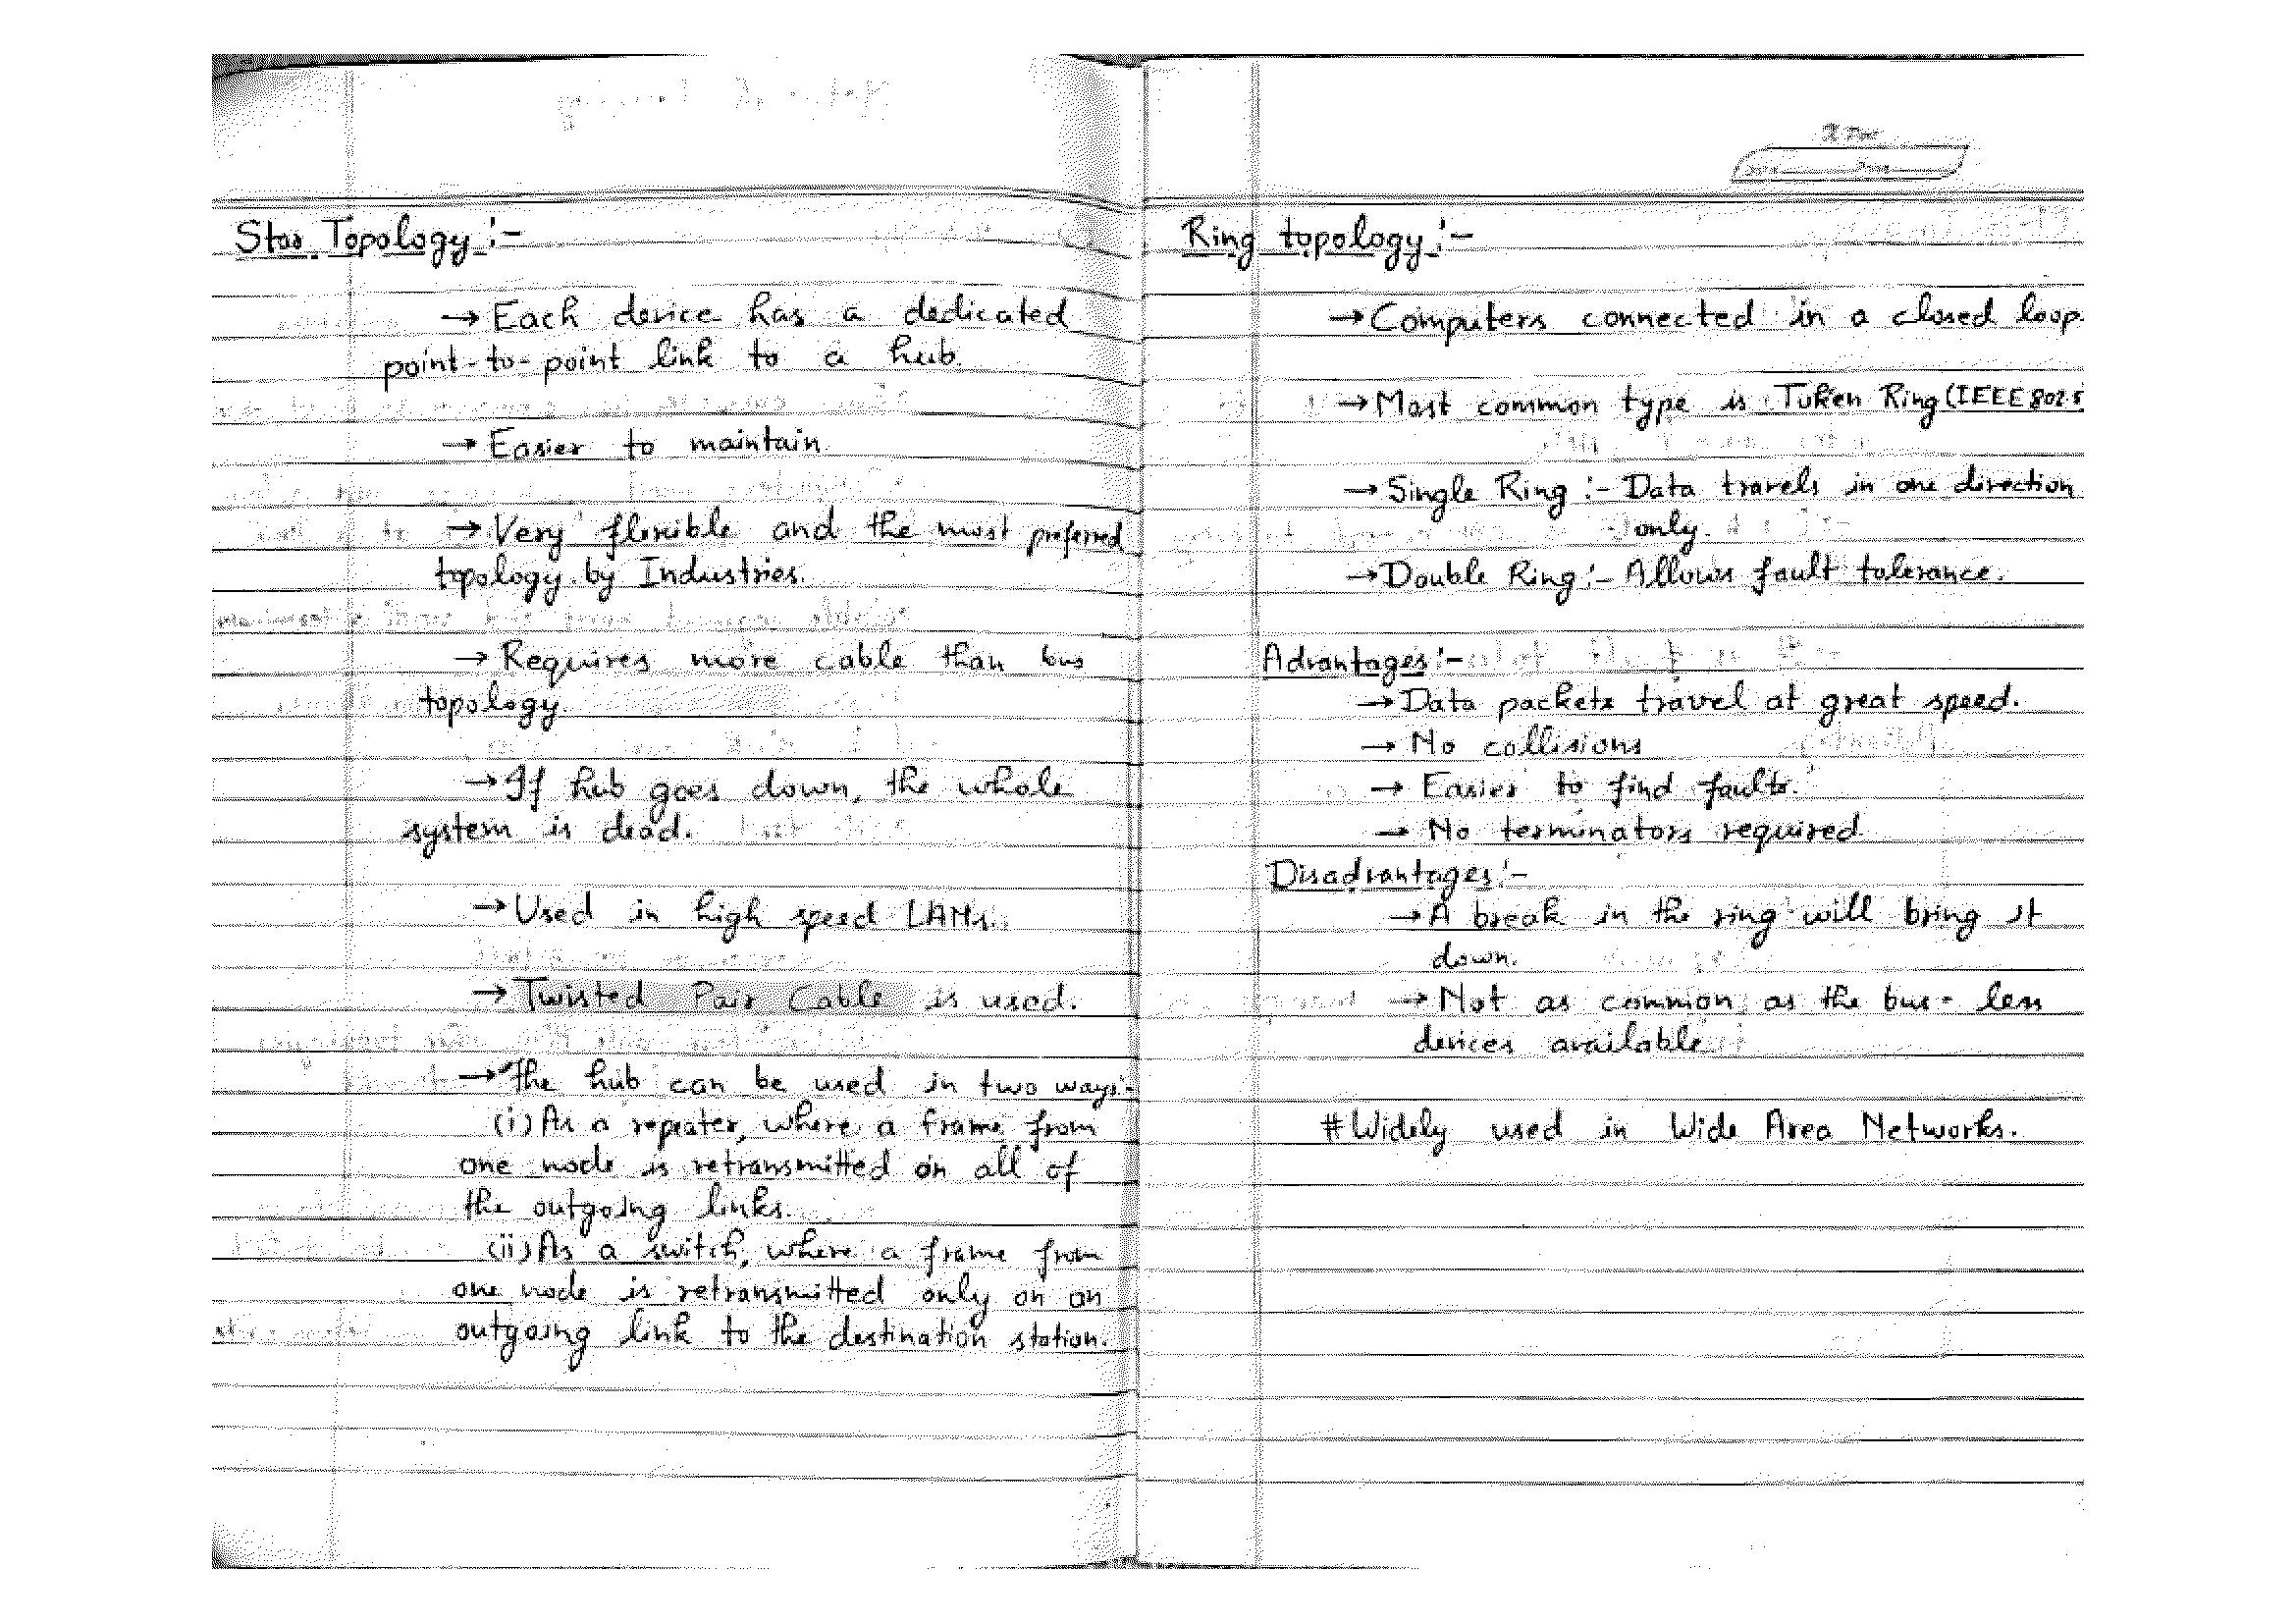 Star Topology :-
→ Each device has a dedicated
point-to-point link to a hub.
→ Easier to maintain.
→ Very flexible and the most preferred
topology by Industries.
→ Requires more cable than bus
topology.
→ If hub goes down, the whole
system is dead.
→ Used in high speed LANs.
→ Twisted Pair Cable is used.
→ The hub can be used in two ways:-
(i) As a repeater, where a frame from
one node is retransmitted on all of
the outgoing links.
(ii) As a switch, where a frame from
one node is retransmitted only on an
outgoing link to the destination station.
Ring topology :-
→ Computers connected in a closed loop.
→ Most common type is Token Ring (IEEE 802.5
→ Single Ring :- Data travels in one direction
only.
→ Double Ring :- Allows fault tolerance.
Advantages :-
→ Data packets travel at great speed.
→ No collisions
→ Easier to find faults.
→ No terminators required.
Disadvantages :-
→ A break in the ring will bring it
down.
→ Not as common as the bus - less
devices available.
# Widely used in Wide Area Networks.